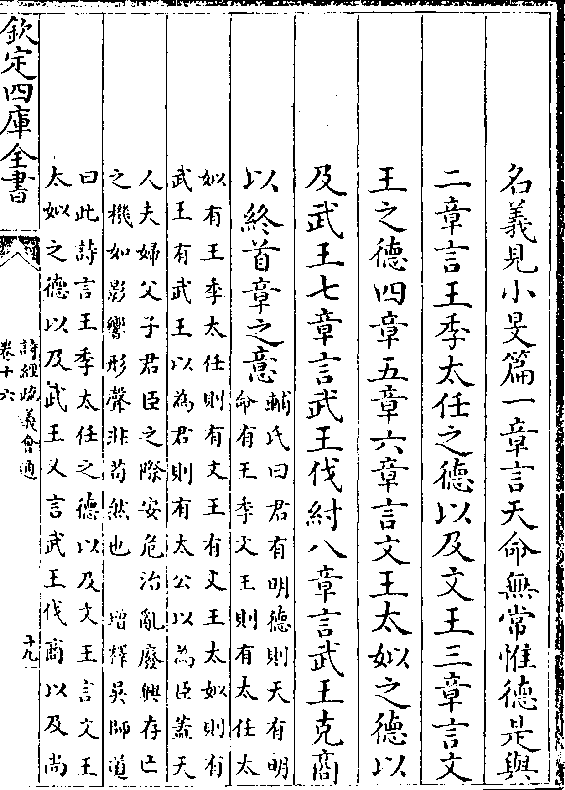 名義見小旻篇一章言天命無常惟德是與
二章言王季太任之德以及文王三章言文
王之德四章五章六章言文王太姒之德以
及武王七章言武王伐紂八章言武王克商
以終首章之意
輔氏曰君有明德則天有明
命有王季文王則有太任太
姒有王季太任則有文王有文王太姒則有
武王有武王以為君則有太公以為臣蓋天
人夫婦父子君臣之際安危治亂廢興存亡
之機如影響形聲非茍然也 增釋吳師道
曰此詩言王季太任之德以及文王言文王
太姒之德以及武王又言武王伐商以及尚
欽定四庫全書
詩經疏義會通
卷十六
十九